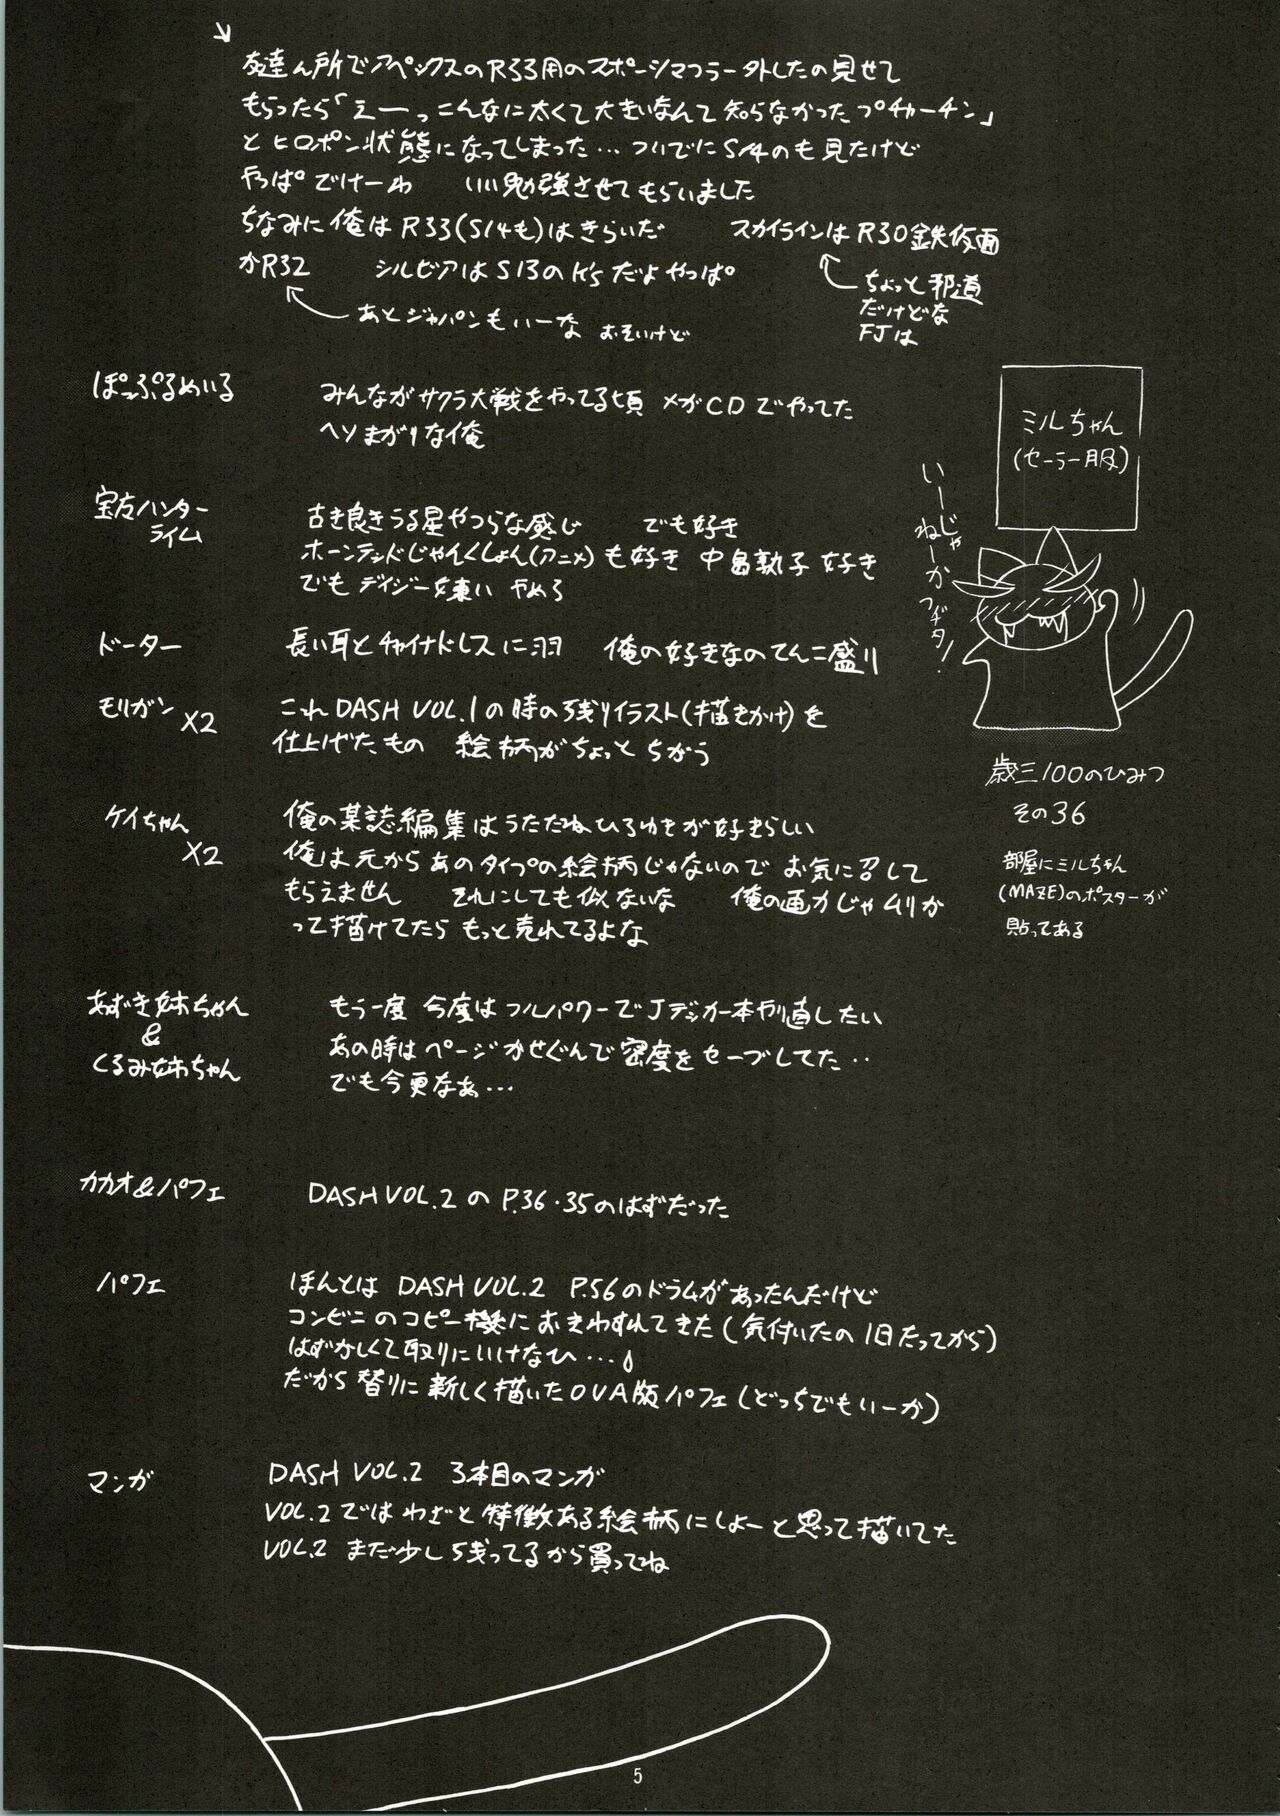 友達ん所でアペックスのR33用のスポーツマフラー外したの見せて
もらったら「えーっこんなに太くて大きいなんて知らなかったプチャーチン」
とヒロポン状態になってしまった…ついでにS14のも見たけど
やっぱでけーわ　いい勉強させてもらいました
ちなみに俺はR33(S14も)はきらいだ　スカイラインはR30鉄仮面
かR32　シルビアはS13のK'sだよやっぱ
ちょっと邪道
だけどな
FJは
あとジャパンもいーな おそいけど
ぽっぷるめいる
みんながサクラ大戦をやってる頃 メガCDでやってた
ヘソまがりな俺
宝石ハンター
ライム
古き良きうる星やつらな感じ　でも好き
ホーンテッドじゃんくしょん(アニメ)も好き 中島敦子 好き
でも デイジー嫌い やめろ
ドーター
長い耳とチャイナドレスに羽　俺の好きなのてんこ盛り
モリガン X2
これDASH VOL.1の時の残りイラスト(描きかけ)を
仕上げたもの　絵柄がちょっとちがう
ケイちゃん
X2
俺の某誌編集はうたたねひろゆきが好きらしい
俺は元からあのタイプの絵柄じゃないので お気に召して
もらえません　それにしても似ないな　俺の画力じゃムリか
って描けてたら もっと売れてるよな
あずき姉ちゃん
&
くるみ姉ちゃん
もう一度 今度はフルパワーでJデッカー本やり直したい
あの時はページかせぐんで密度をセーブしてた‥
でも今更なぁ…
カカオ&パフェ
DASH VOL.2 の P.36・35のはずだった
パフェ
ほんとは DASH VOL.2 P.56のドラムがあったんだけど
コンビニのコピー機におきわすれてきた(気付いたの1日たってから)
はずかしくて取りにいけなひ…♪
だから替りに新しく描いたOVA版パフェ(どっちでもいーか)
マンガ
DASH VOL.2 3本目のマンガ
VOL.2ではわざと特徴ある絵柄にしよーと思って描いてた
VOL.2 まだ少し残ってるから買ってね
ミルちゃん
(セーラー服)
いーじゃ
ねーか
歳三100のひみつ
その36
部屋にミルちゃん
(MAZE)のポスターが
貼ってある
5